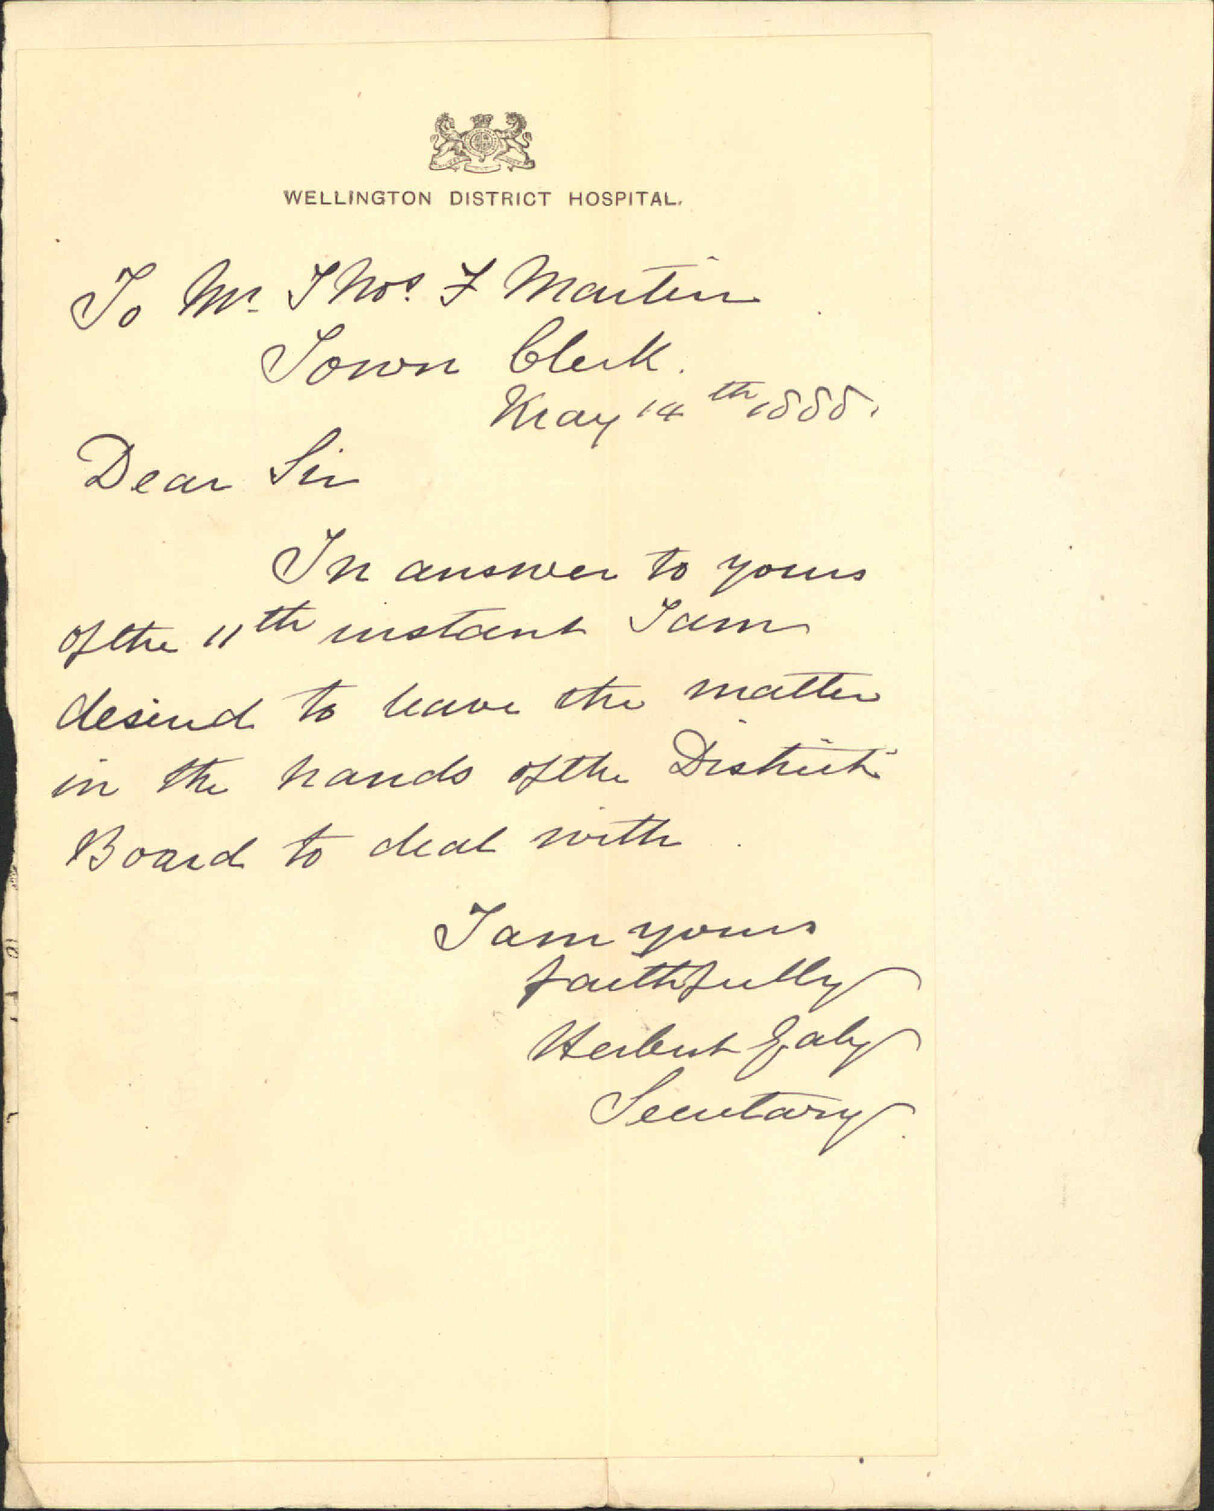 WELLINGTON DISTRICT HOSPITAL.
To Mr. Thos. F Martin
Town Clerk.
May 14th 1888.
Dear Sir
In answer to yours
of the 11th instant I am
desired to leave the matter
in the hands of the District
Board to deal with.
I am yours
faithfully
Herbert Gaby
Secretary